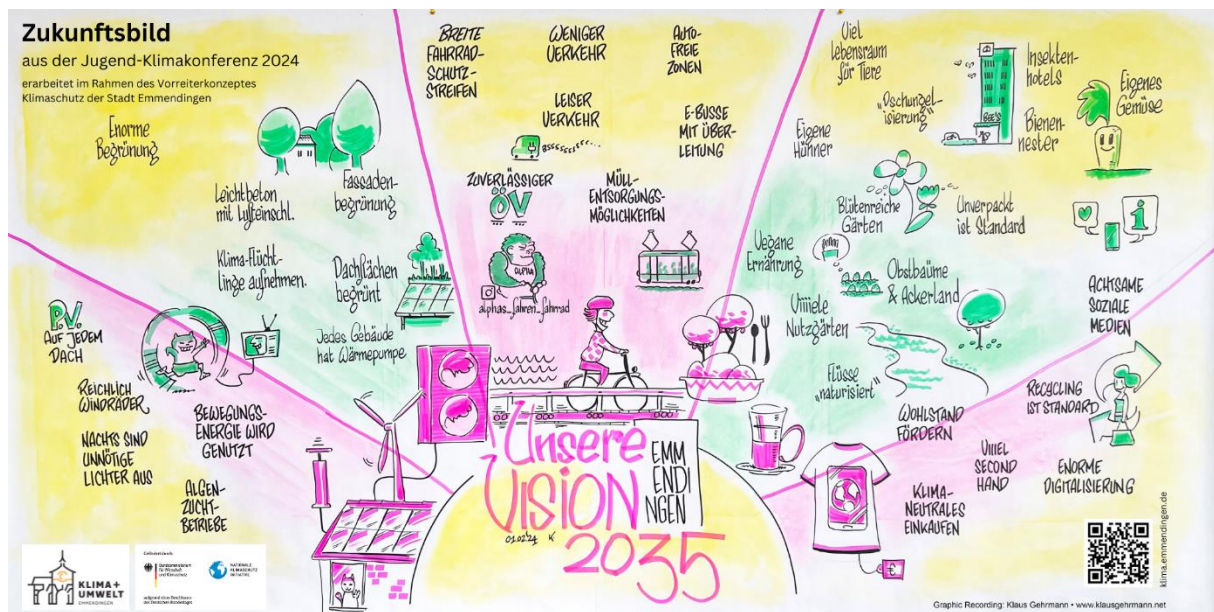 Zukunftsbild
aus der Jugend-Klimakonferenz 2024
erarbeitet im Rahmen des Vorreiterkonzeptes
Klimaschutz der Stadt Emmendingen
Enorme
Begrünung
Leichtbeton
mit Lufteinschl.
Fassaden-
begrünung
Klima-Flücht-
linge aufnehmen.
Dachflächen
begrünt
Jedes Gebäude
hat Wärmepumpe
P.V.
AUF JEDEM
DACH
REICHLICH
WINDRÄDER
NACHTS SIND
UNNÖTIGE
LICHTER AUS
BEWEGUNGS-
ENERGIE WIRD
GENUTZT
ALGEN-
ZUCHT-
BETRIEBE
BREITE
FAHRRAD-
SCHUTZ-
STREIFEN
WENIGER
VERKEHR
AUTO-
FREIE
ZONEN
LEISER
VERKEHR
E-BUSSE
MIT ÜBER-
LEITUNG
ZUVERLÄSSIGER
ÖV
MÜLL-
ENTSORGUNGS-
MÖGLICHKEITEN
ALPHA
alphas_fahren_fahrrad
Viel
lebensraum
für Tiere
"Dschungel-
isierung"
BEE'S
Insekten-
hotels
Bienen-
nester
Eigenes
Gemüse
Eigene
Hühner
Blütenreiche
Gärten
Unverpackt
ist Standard
Vegane
Ernährung
Obstbäume
& Ackerland
Viiiiele
Nutzgärten
Flüsse
"naturisiert"
i
ACHTSAME
SOZIALE
MEDIEN
RECYCLING
IST STANDARD
WOHLSTAND
FÖRDERN
VIIIEL
SECOND
HAND
ENORME
DIGITALISIERUNG
KLIMA-
NEUTRALES
EINKAUFEN
€
Unsere
VISION
EMM
ENDI
NGEN
2035
01.02.24
KLIMA+
UMWELT
EMMENDINGEN
Gefördert durch:
Bundesministerium
für Wirtschaft
und Klimaschutz
NATIONALE
KLIMASCHUTZ
INITIATIVE
aufgrund eines Beschlusses
des Deutschen Bundestages
klima.emmendingen.de
Graphic Recording: Klaus Gehrmann • www.klausgehrmann.net